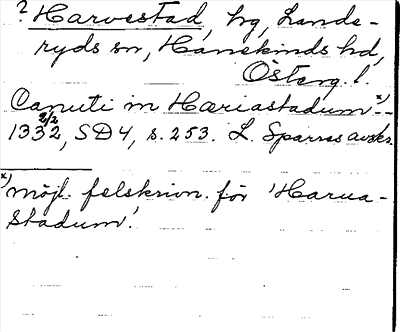 ? Harvestad, hg, Lande-
ryds sn, Hanekinds hd,
Östergl.
Canuti in Hæriastadum x) --
1332 2/2, SD4, s. 253. L. Sparres avskr.
x) möjl. felskrivn. för 'Harua-
stadum'.